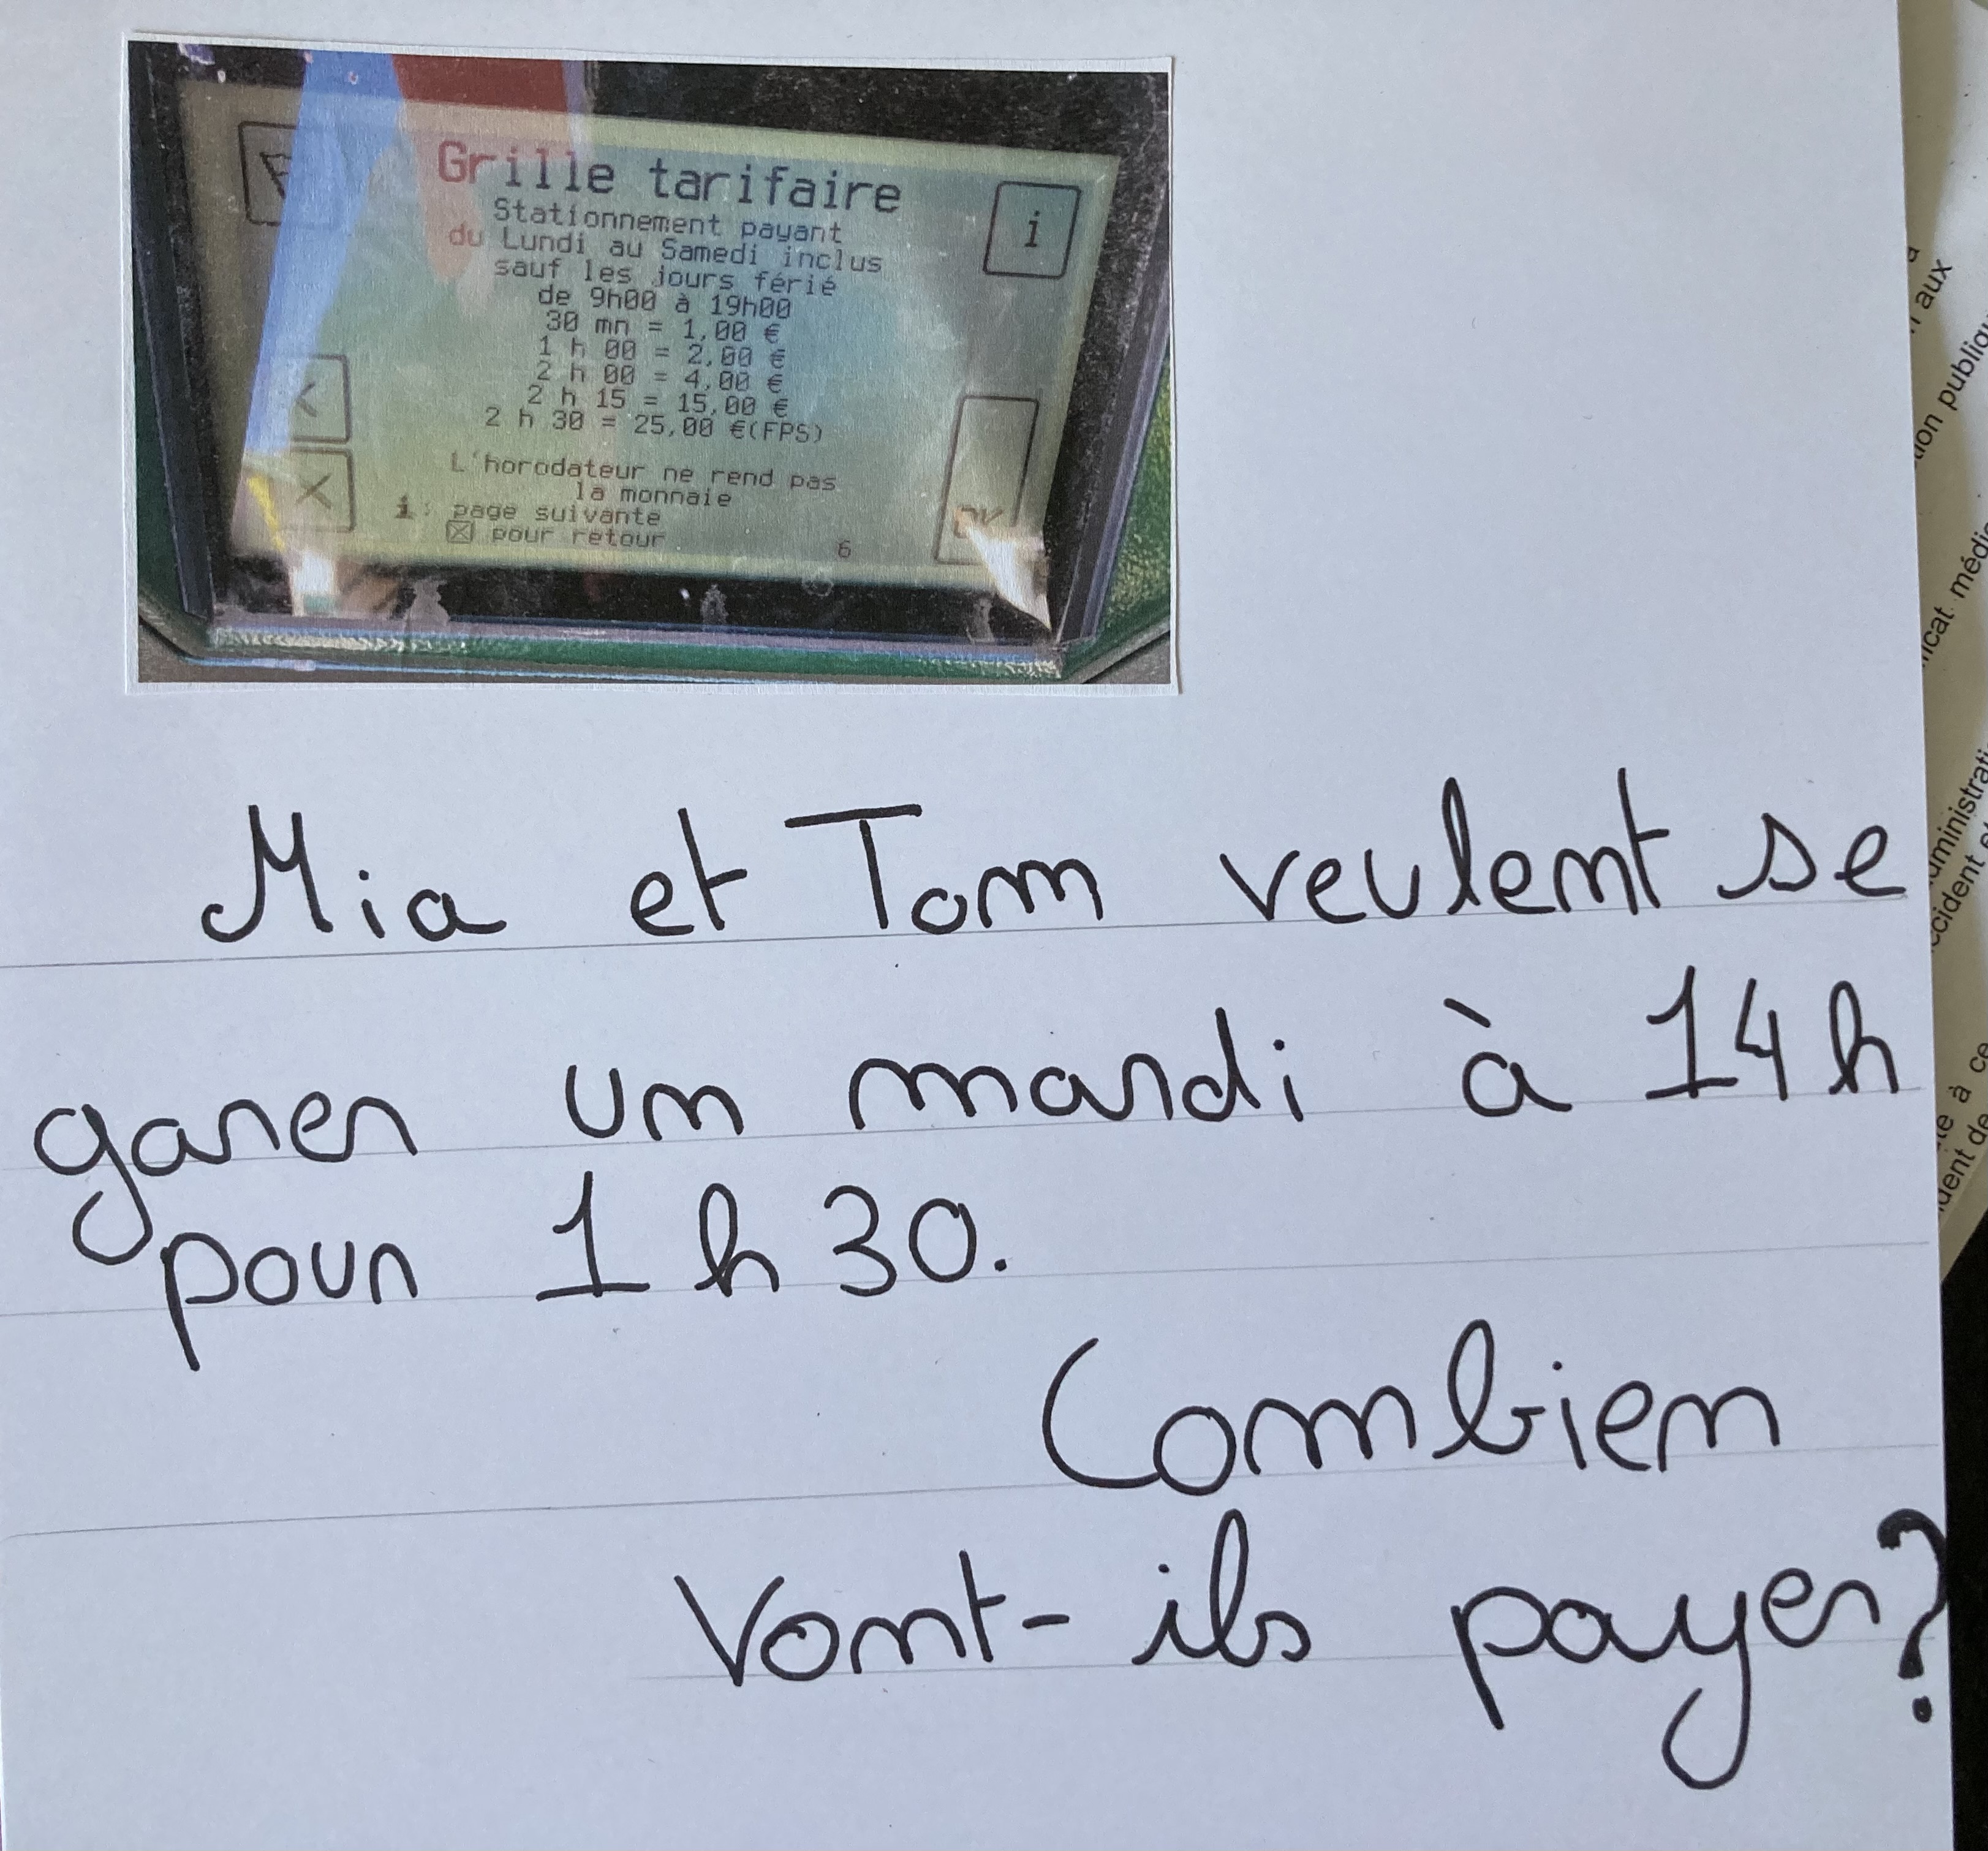 Grille tarifaire
Stationnement payant
du Lundi au Samedi inclus
sauf les jours férié
de 9h00 à 19h00
30 mn = 1,00 €
1 h 00 = 2,00 €
2 h 00 = 4,00 €
2 h 15 = 15,00 €
2 h 30 = 25,00 €(FPS)
L'horodateur ne rend pas
la monnaie
i: page suivante
☒ pour retour 6
i
<
X
OK
Mia et Tom veulent se
garer un mardi à 14h
pour 1 h 30.
Combien
Vont-ils payer?
aux
médic
à ce